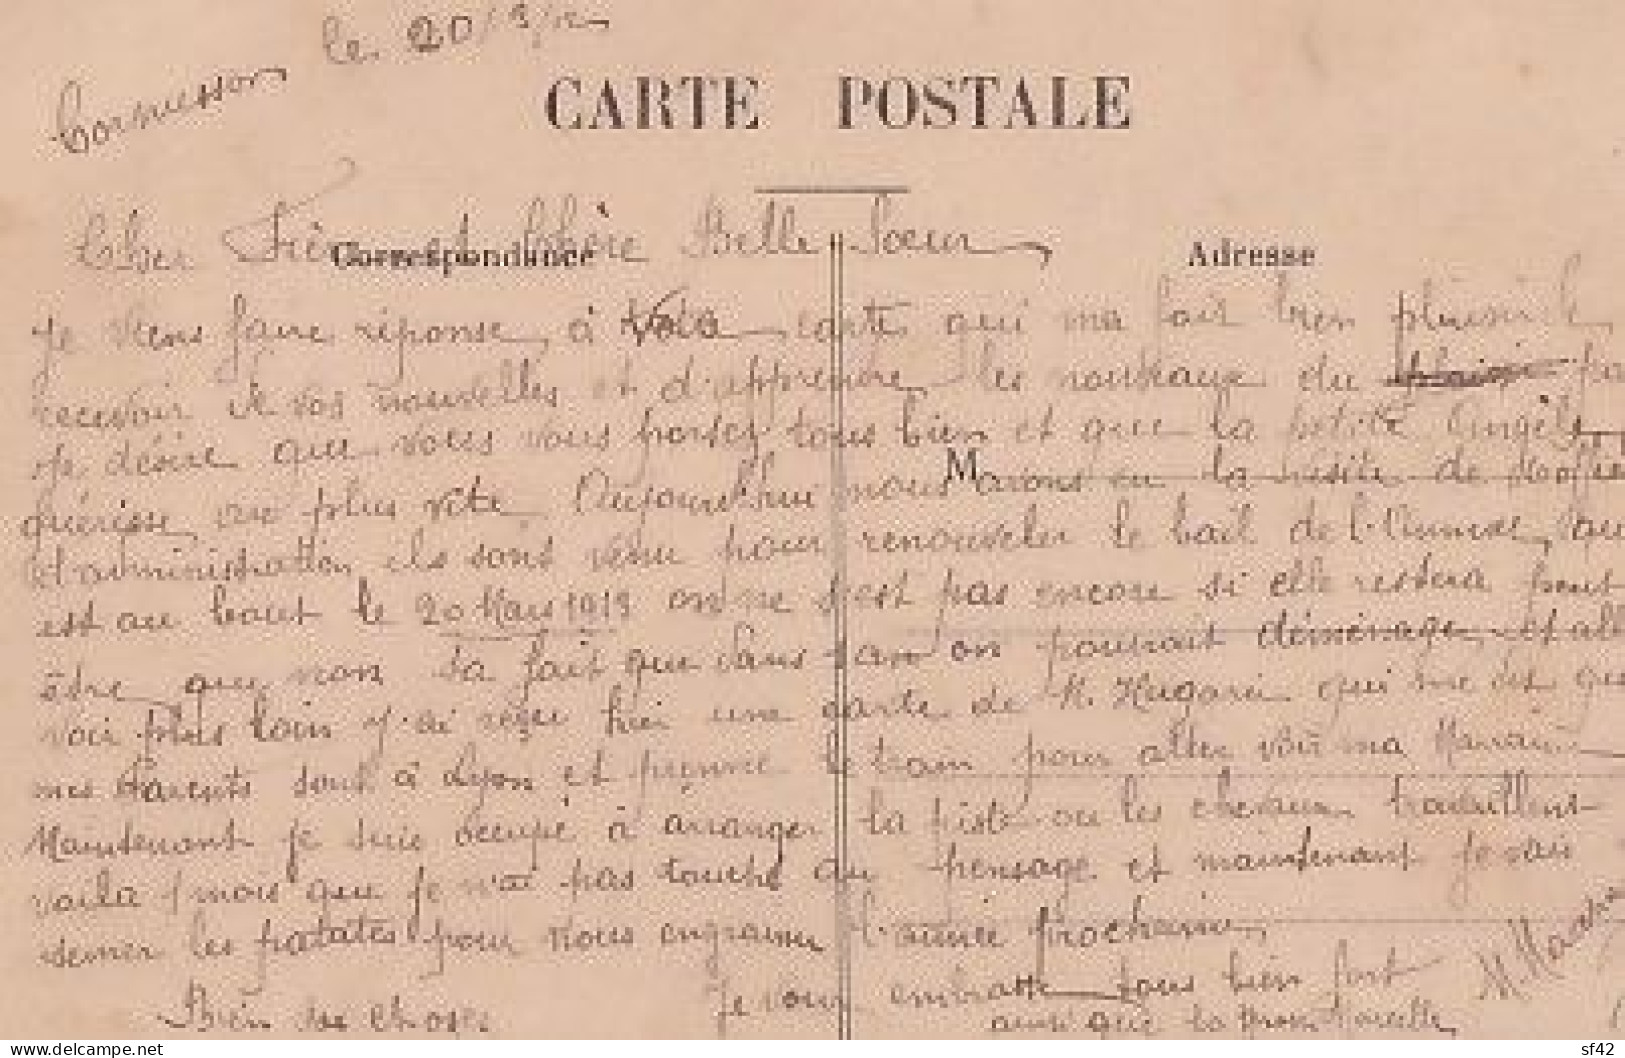 le 20/3/12
Cormusson
CARTE POSTALE
Cher Frère et Chère Belle Soeur
Correspondance
Adresse
Je viens faire réponse à Vote carte qui ma fait bien plaisir de
recevoir de vos nouvelles et d'apprendre les nouveaux du
Je désire que vous vous portez tous bien et que la petite Angèle
guérisse au plus vite. Aujourd'hui nous avons eu la visite de
M
d'administration ils sont venu pour renouveler le bail de
est au bout le 20 Mars 1913 on ne s'est pas encore si elle restera peut
être que non sa fait que dans 1 an on pourrait déménage et all
voir plus loin j'ai reçu hier une carte de M. Hugard qui me dit que
mes Parents sont à Lyon et prenne le train pour aller voir ma Marraine
Maintenant je suis occupé à arranger la piste ou les chevaux travaillent
voila 1 mois que je n'ai pas touché au pensage et maintenant je vais
semer les patates pour nous engraisser l'année prochaine
Bien des choses Je vous embrasse tous bien fort
ainsi que la